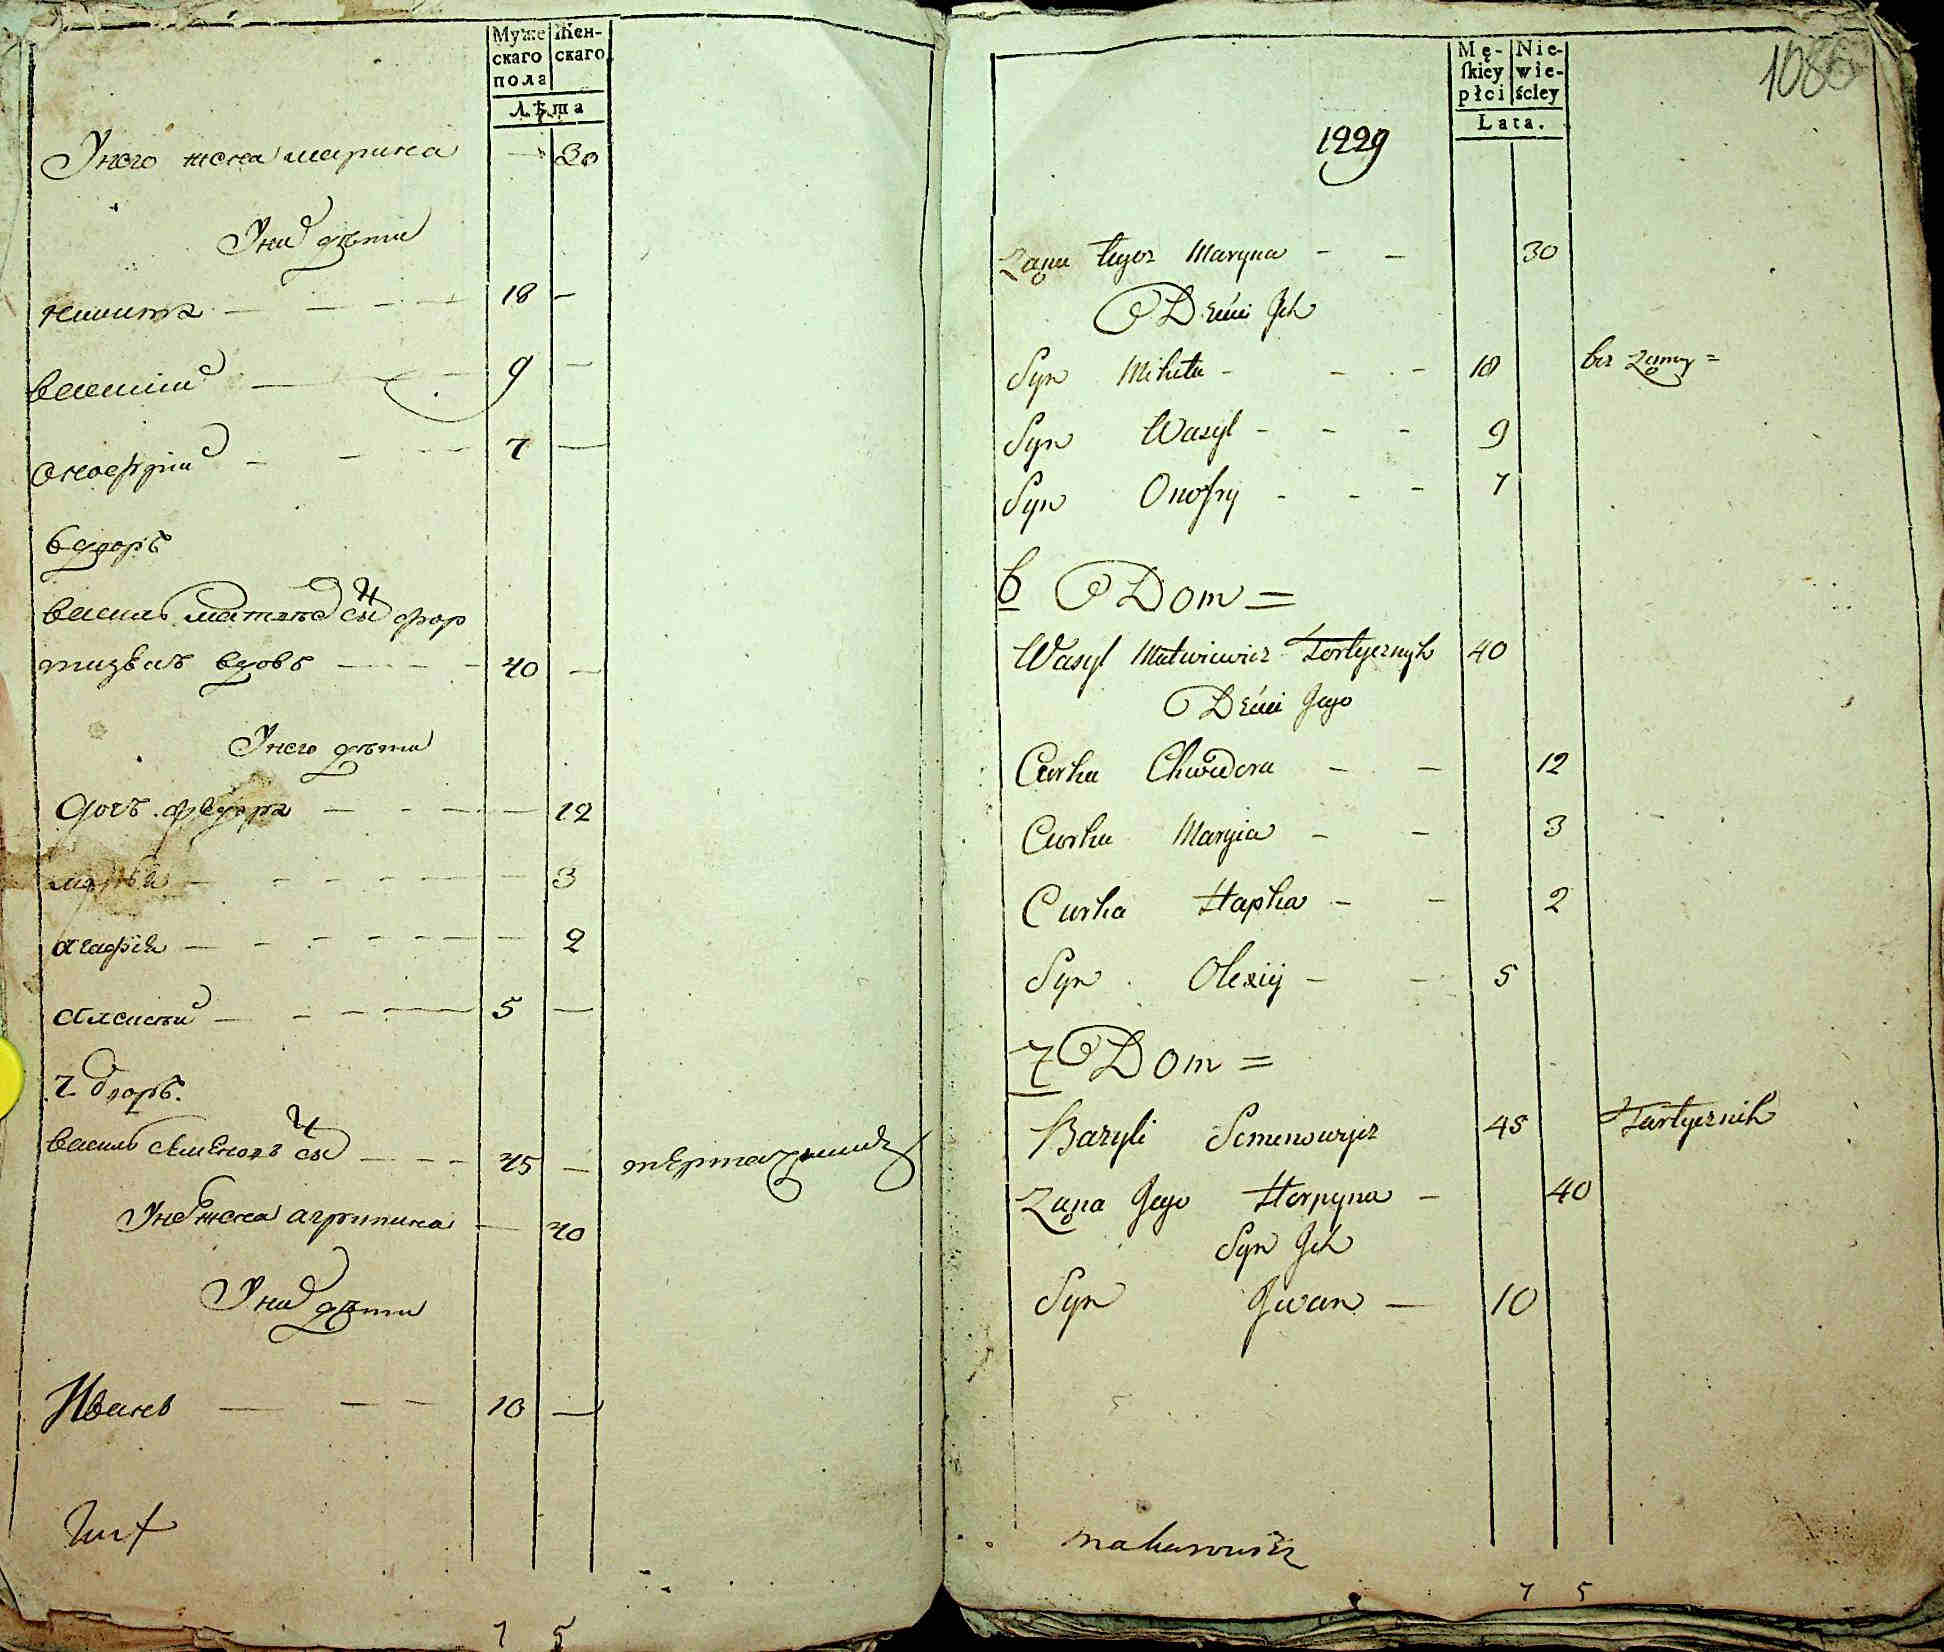 Муже
скаго
пола
Жен-
скаго
лѣта
У него жена марина — 30
У них дѣти
никита — 18 —
василий — 9 —
онофрий — 7 —
6 дворъ
василь матвѣевъ сынъ фор
тизвалъ вдовъ — 40 —
У него дѣти
дочь федора — 12
марья — 3
агафия — 2
алексѣй — 5 —
7 дворъ.
василь семеновъ сынъ — 45 —
У него жена агрипина — 40
У них дѣти
Иванъ — 10 —
7 5
Mę-
skiey
płci
Nie-
wie-
ściey
Lata.
1086
1229
Zana tegoz Maryna - - 30
Dzieci Ich
Syn Mikita - - - 18 bez zany =
Syn Wasyl - - - 9
Syn Onofry - - - 7
6 Dom =
Wasyl Matwiewicz Tortycznyk 40
Dzieci Jego
Curka Chwedora - - 12
Curka Maryia - - 3
Curka Hapka - - 2
Syn Olexiy - - 5
7 Dom =
Bazyli Semenowicz 45 Tartycznik
Zana Jego Horpyna - 40
Syn Ich
Syn Iwan — 10
makarowicz
7 5